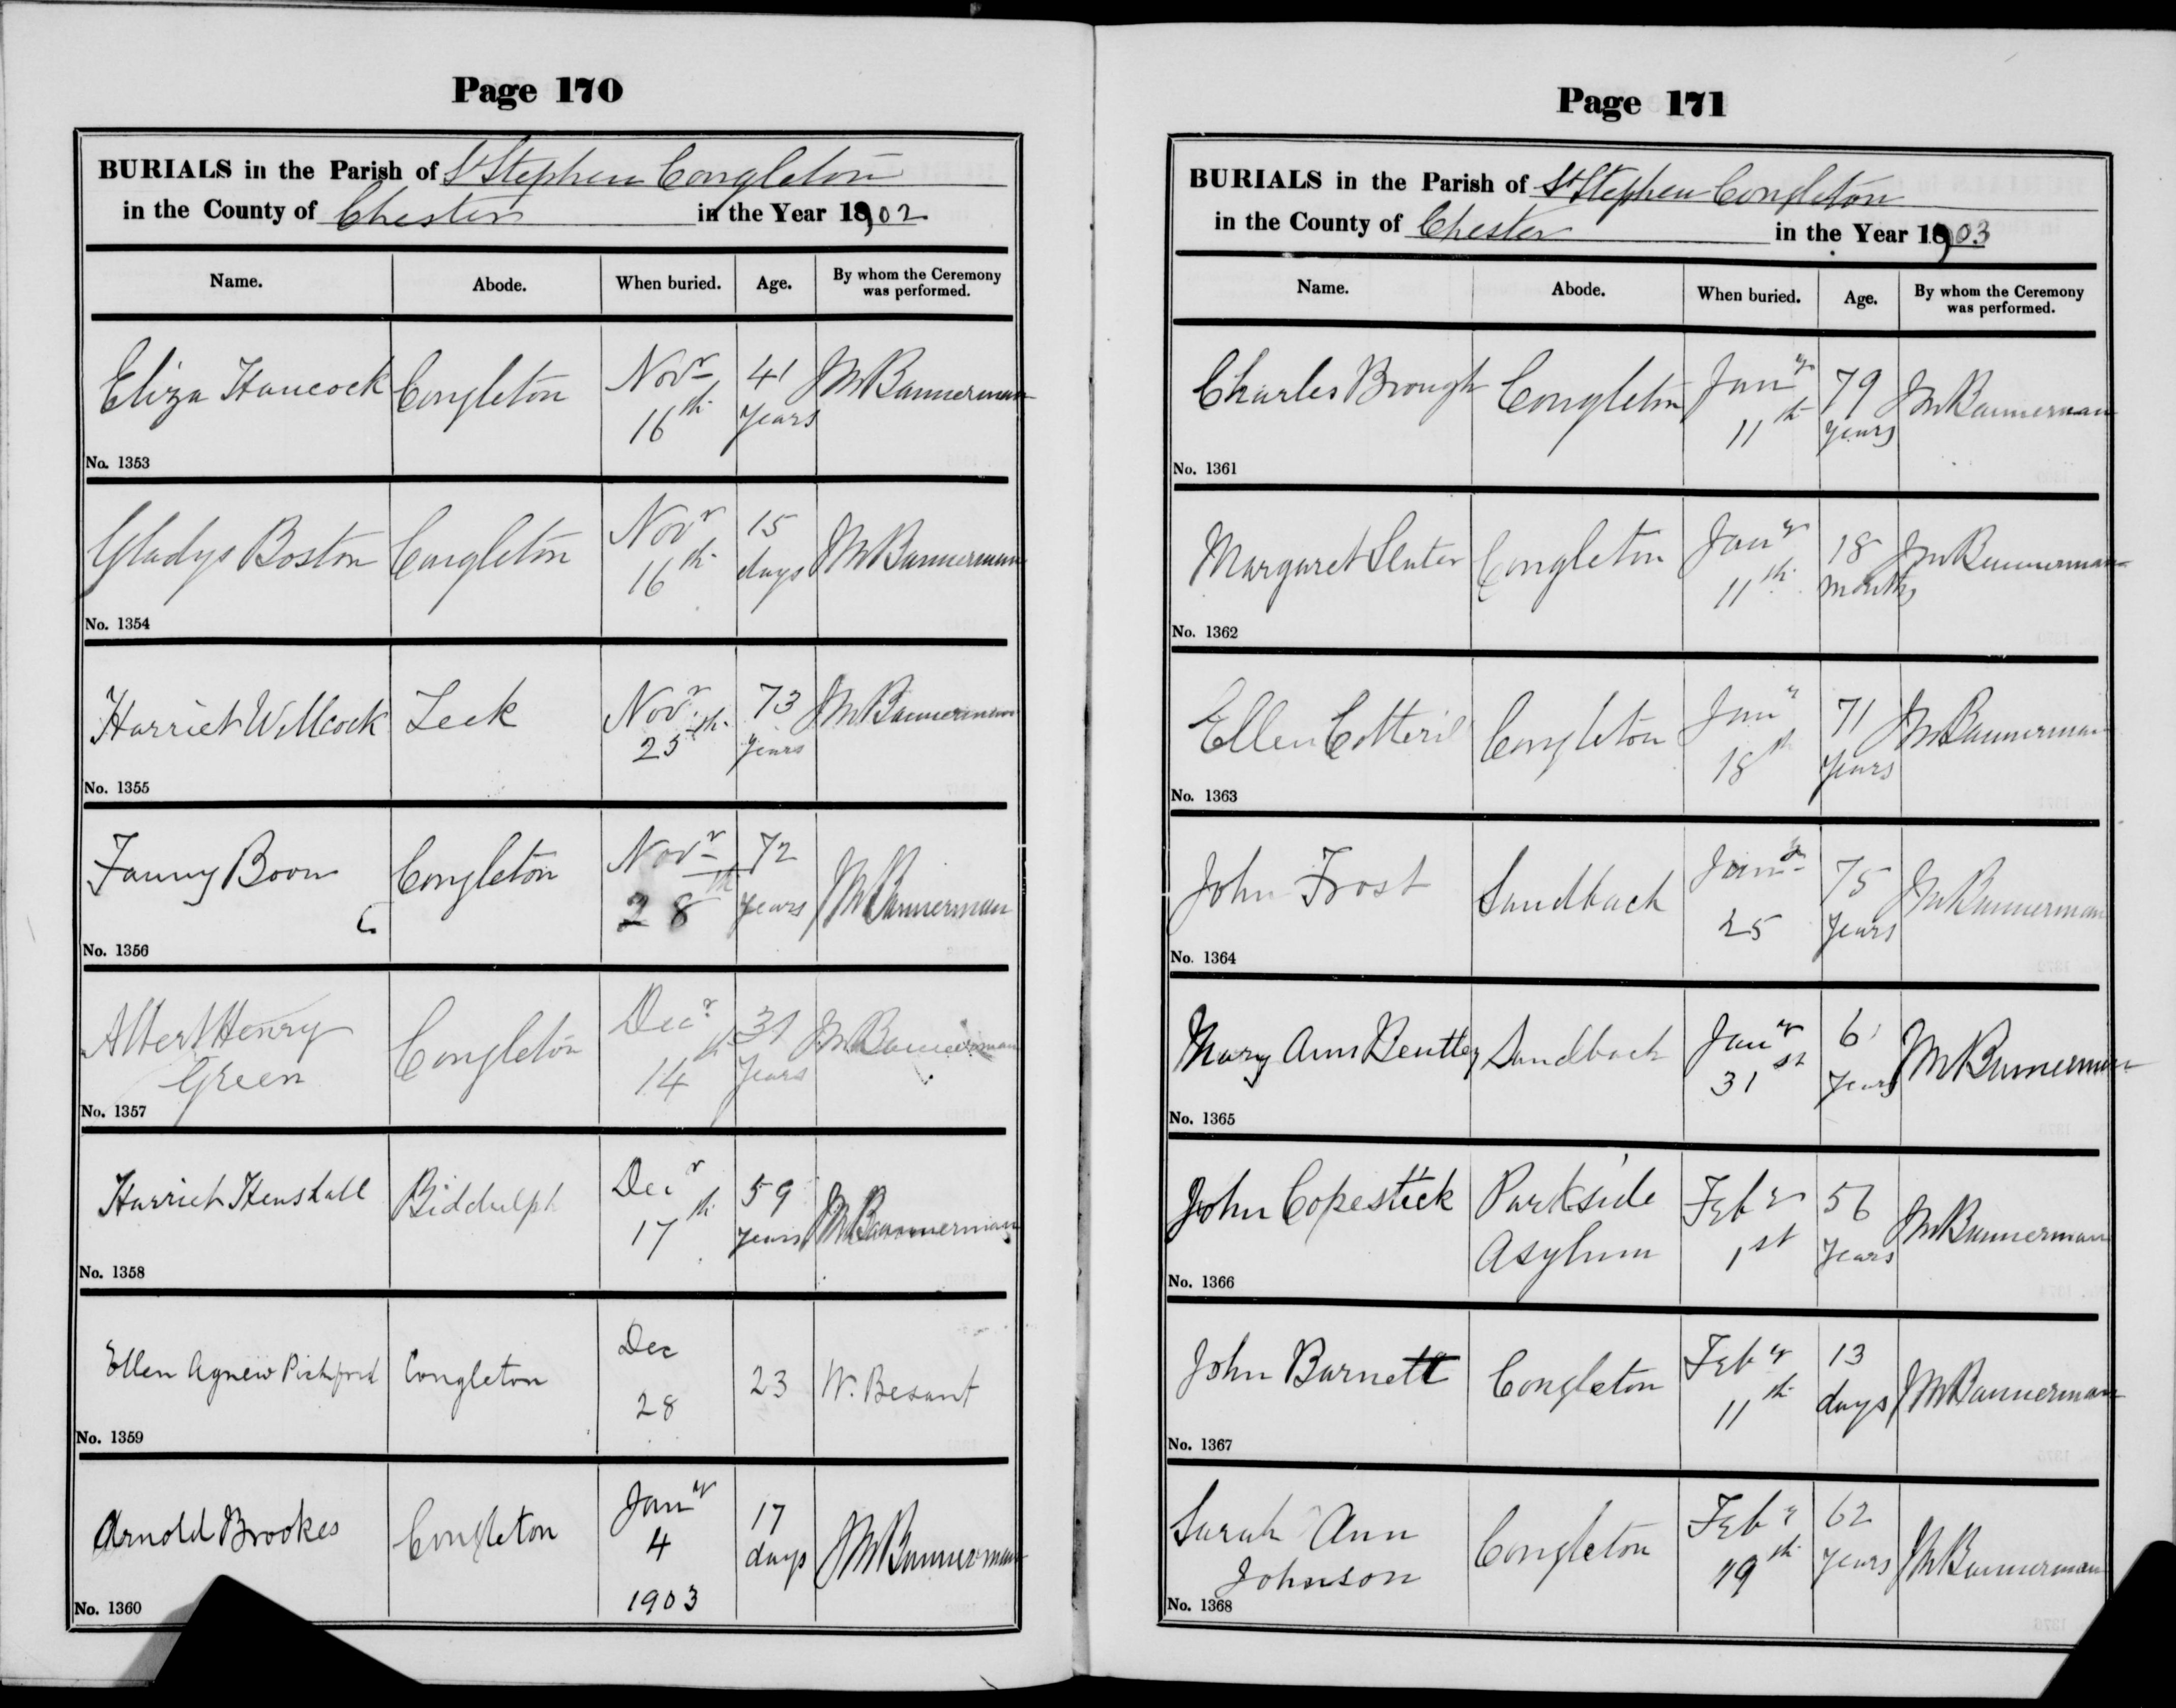 Page 170
BURIALS in the Parish of St Stephen Congleton
in the County of Chester in the Year 1902
Name. Abode. When buried. Age. By whom the Ceremony was performed.
Eliza Hancock Congleton Novr 16th 41 years JM Bannerman
No. 1353
Gladys Boston Congleton Novr 16th 15 days JM Bannerman
No. 1354
Harriet Willcock Leek Novr 25th 73 years JM Bannerman
No. 1355
Fanny Boon Congleton Novr 28th 72 years JM Bannerman
No. 1356
Albert Henry Green Congleton Decr 14th 31 years JM Bannerman
No. 1357
Harriet Henshall Biddulph Decr 17th 59 years JM Bannerman
No. 1358
Ellen Agnew Pickford Congleton Dec 28 23 W. Besant
No. 1359
Arnold Brookes Congleton Jany 4 1903 17 days JM Bannerman
No. 1360
Page 171
BURIALS in the Parish of St Stephen Congleton
in the County of Chester in the Year 1903
Name. Abode. When buried. Age. By whom the Ceremony was performed.
Charles Brough Congleton Jany 11th 79 years JM Bannerman
No. 1361
Margaret Slater Congleton Jany 11th 18 months JM Bannerman
No. 1362
Ellen Cotteril Congleton Jany 18th 71 years JM Bannerman
No. 1363
John Frost Sandbach Jany 25 75 years JM Bannerman
No. 1364
Mary Ann Bentley Sandbach Jany 31st years JM Bannerman
No. 1365
John Copestick Parkside Asylum Feby 1st 56 years JM Bannerman
No. 1366
John Barnett Congleton Feby 11th 13 days JM Bannerman
No. 1367
Sarah Ann Johnson Congleton Feby 19th 62 years JM Bannerman
No. 1368